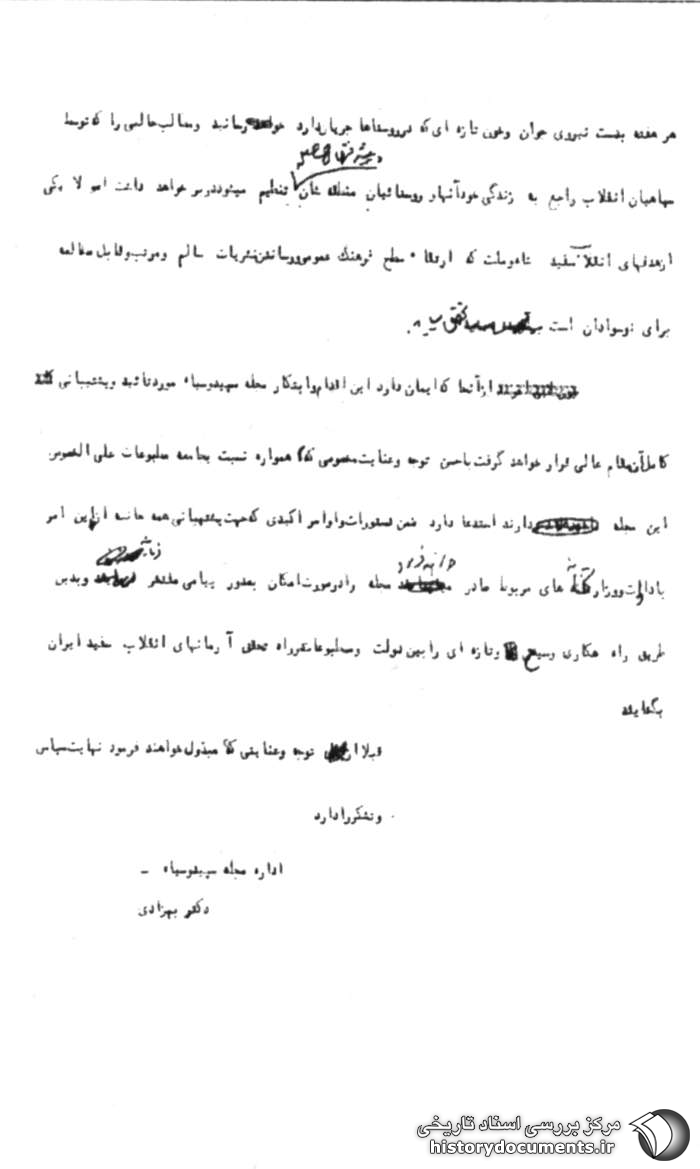 هر هفته بدست نیروی جوان وخون تازه ای که درروستاها جریان دارد خواهد رسانید ومطالب جالبی را که توسط
سپاهیان انقلاب راجع به زندگی خودآنها و روستائیان منطقه شان تنظیم میشوددربر خواهد داشت اصولا یکی
ازهدفهای انقلاب سفید شاه وملت که ارتقاء سطح فرهنگ عمومی ورساندن نشریات سالم ومرتب وقابل مطالعه
برای نوسوادان است
ازآنجا که ایمان دارد این اقدام وابتکار مجله سپیدوسیاه مورد تائید وپشتیبانی
کامل آن مقام عالی قرار خواهد گرفت باحسن توجه وعنایت مخصوصی که همواره نسبت بجامعه مطبوعات علی الخصوص
این مجله دارند استدعا دارد ضمن دستورات واوامر اکیدی که جهت پشتیبانی همه جانبه ازاین امر
بادارات ووزارتخانه های مربوطه صادر میفرمایند مجله را درصورت امکان بصدور پیامی مفتخر فرمایند وبدین
طریق راه همکاری وسیع وتازه ای را بین دولت ومطبوعات درراه تحقق آرمانهای انقلاب سفید ایران
بگشایند
قبلا از توجه وعنایتی که مبذول خواهند فرمود نهایت سپاس
وتشکر را دارد
اداره مجله سپیدوسیاه -
دکتر بهزادی
مرکز بررسی اسناد تاریخی
historydocuments.ir